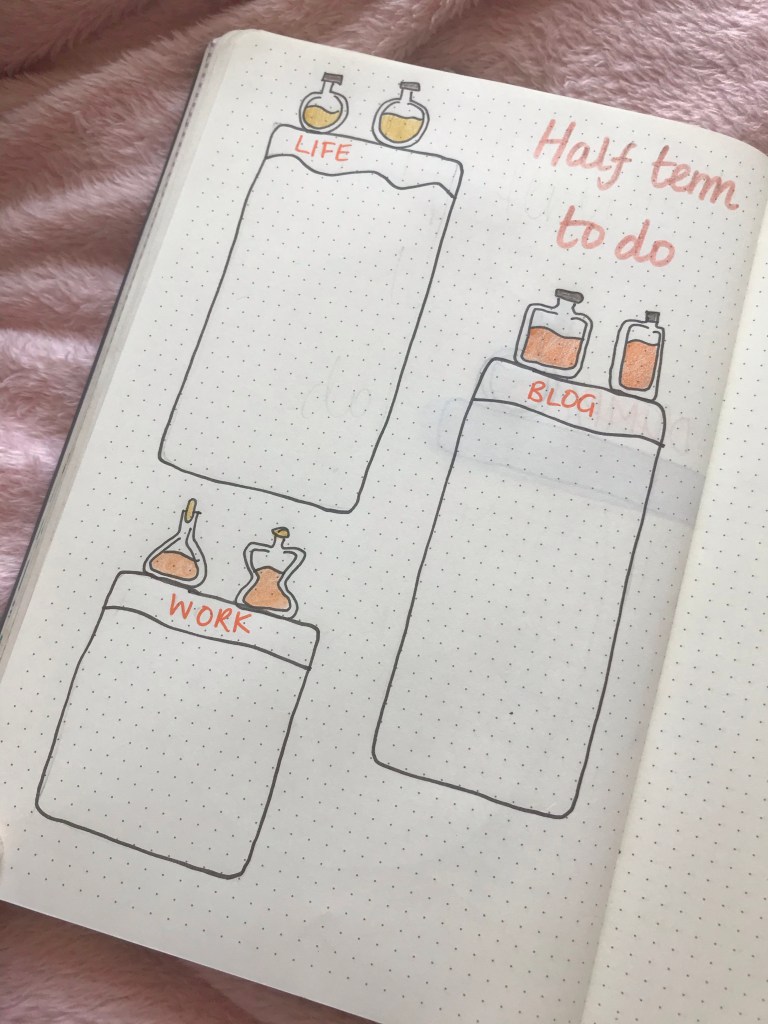 Half term
to do
LIFE
BLOG
WORK